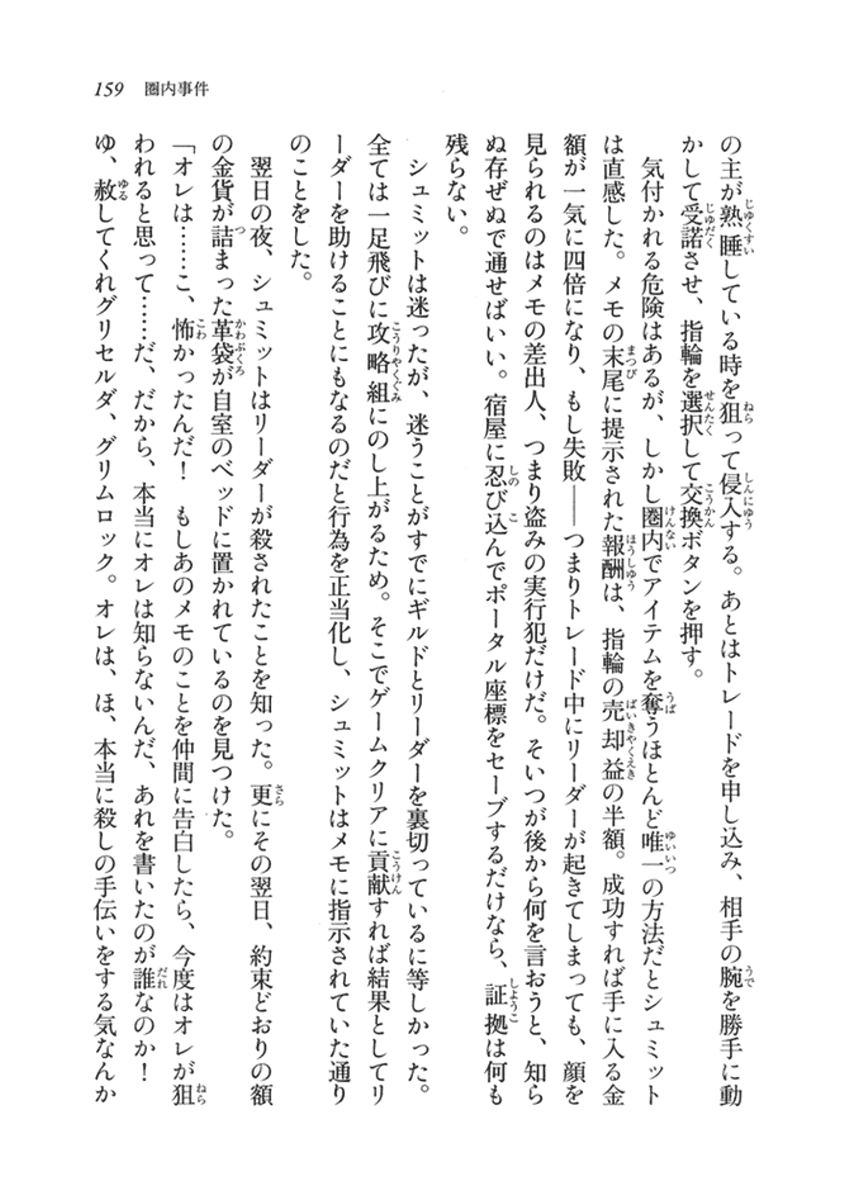 159 圏内事件
の主が熟睡している時を狙って侵入する。あとはトレードを申し込み、相手の腕を勝手に動
かして受諾させ、指輪を選択して交換ボタンを押す。
気付かれる危険はあるが、しかし圏内でアイテムを奪うほとんど唯一の方法だとシュミット
は直感した。メモの末尾に提示された報酬は、指輪の売却益の半額。成功すれば手に入る金
額が一気に四倍になり、もし失敗――つまりトレード中にリーダーが起きてしまっても、顔を
見られるのはメモの差出人、つまり盗みの実行犯だけだ。そいつが後から何を言おうと、知ら
ぬ存ぜぬで通せばいい。宿屋に忍び込んでポータル座標をセーブするだけなら、証拠は何も
残らない。
シュミットは迷ったが、迷うことがすでにギルドとリーダーを裏切っているに等しかった。
全ては一足飛びに攻略組にのし上がるため。そこでゲームクリアに貢献すれば結果としてリ
ーダーを助けることにもなるのだと行為を正当化し、シュミットはメモに指示されていた通り
のことをした。
翌日の夜、シュミットはリーダーが殺されたことを知った。更にその翌日、約束どおりの額
の金貨が詰まった革袋が自室のベッドに置かれているのを見つけた。
「オレは……こ、怖かったんだ！　もしあのメモのことを仲間に告白したら、今度はオレが狙
われると思って……だ、だから、本当にオレは知らないんだ、あれを書いたのが誰なのか！
ゆ、赦してくれグリセルダ、グリムロック。オレは、ほ、本当に殺しの手伝いをする気なんか